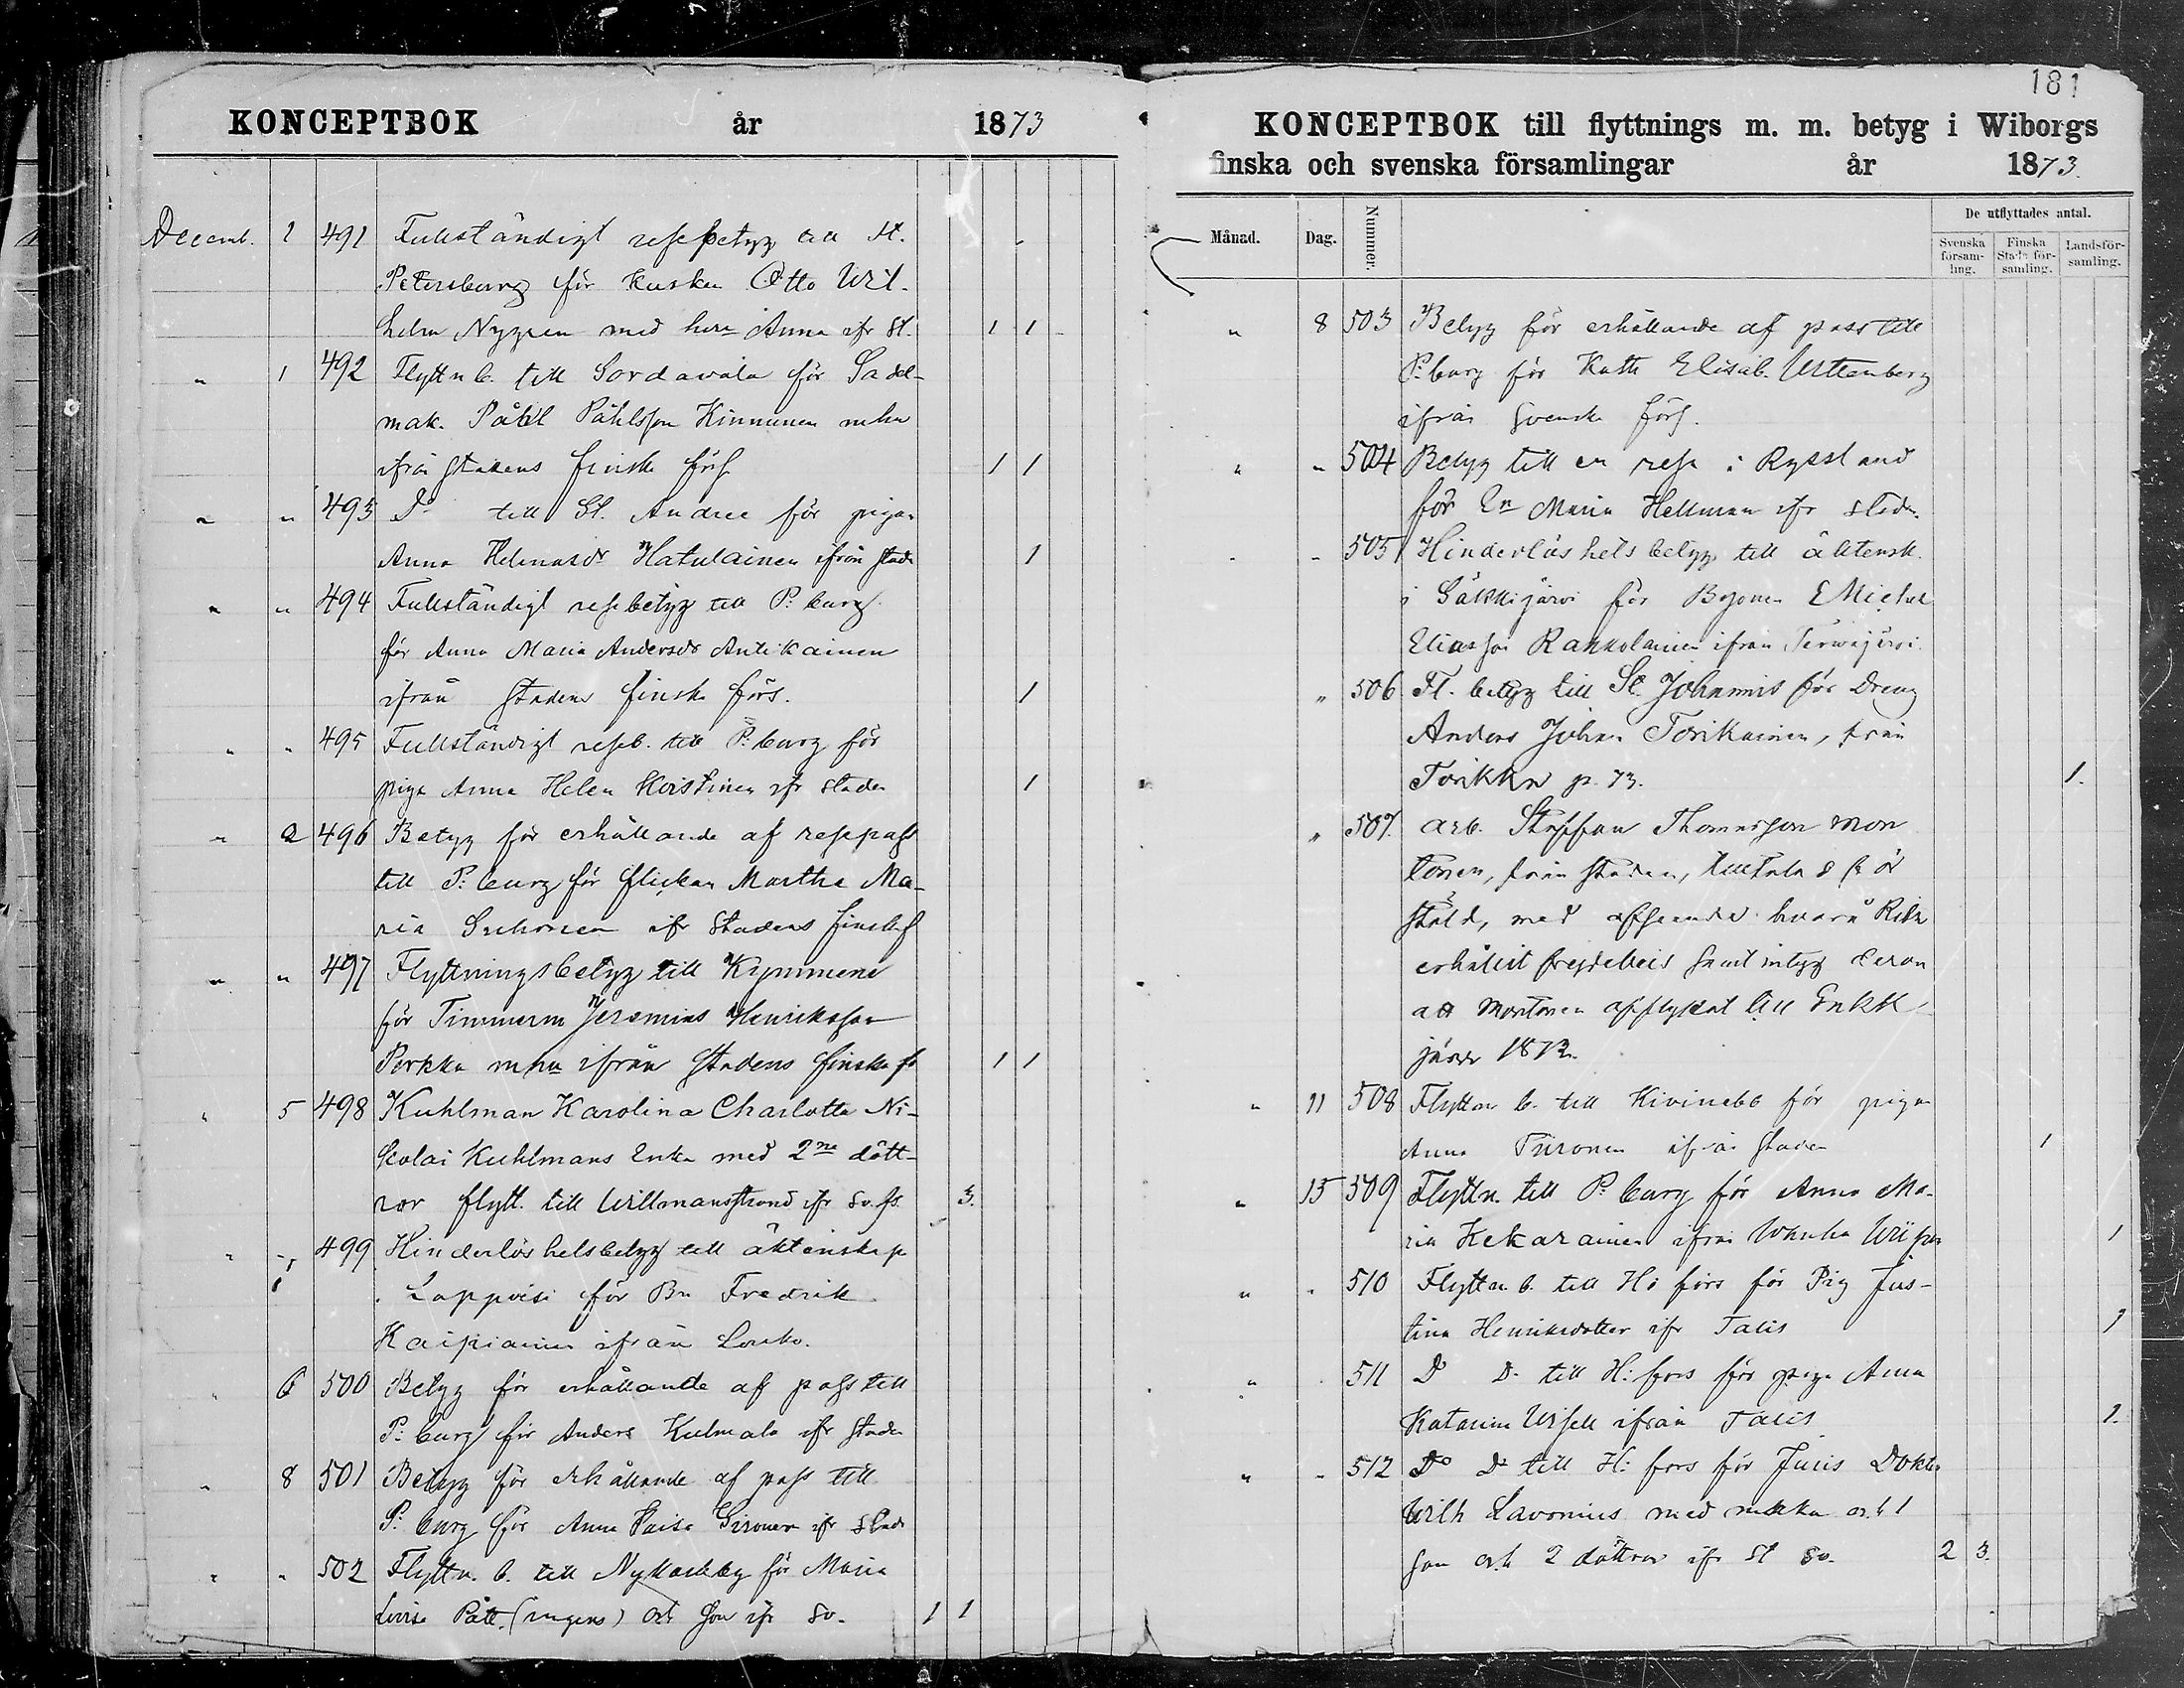 KONCEPTBOK år 1873
Decemb. 1 491 Fullständigt resebetyg till St.
Petersburg för Kusken Otto Wil-
helm Nygren med hu Anna ifr St. 1 1
" 1 492 Flyttn b. till Sordavala för Sadel-
mak. Påhl Påhlsson Kinnunen mhu
ifrån stadens finska förs 1 1
" " 493 Do till St. Andree för pigan
Anna Helenasdr Hatulainen ifrån stade 1
" " 494 Fullständigt resebetyg till P:burg
för Anna Maria Andersdr Antikainen
ifrån stadens finska förs. 1
" " 495 Fullständigt reseb. till P:burg för
piga Anna Helen Koistinen ifr staden 1
" 2 496 Betyg för erhållande af respass
till P:burg för flickan Martha Ma-
ria Suhonen ifr stadens finska f
" " 497 Flyttningsbetyg till Kymmene
för Timmerm Jeremias Henriksson
Perkka mhu ifrån stadens finska fö 1 1
" 5 498 Kuhlman Karolina Charlotta Ni-
kolai Kuhlmans Enka med 2ne dött-
rar flytt. till Willmanstrand ifr Sv. fs. 3.
" " 499 Hinderlöshetsbetyg till äktenskap
i Lappvesi för Bn Fredrik
Kaipiainen ifrån Louko.
" 6 500 Betyg för erhållande af pass till
P:burg för Anders Kulmala ifr staden
" 8 501 Betyg för erhållande af pass till
P:burg för Anna Kaisa Sironen ifr stade
" " 502 Flyttn. b. till Nykarleby för Maria
Lovisa Pått. (ungers) och son ifr Sv. 1 1
181
KONCEPTBOK till flyttnings m. m. betyg i Wiborgs
finska och svenska församlingar år 1873.
Månad. Dag. Nummer. De utflyttades antal.
Svenska församling. Finska Stadsförsamling. Landsförsamling.
" 8 503 Betyg för erhållande af pass till
P:burg för Kath Elisab. Uttenberg
ifrån Svenska förs.
" " 504 Betyg till en resa i Ryssland
för En Maria Hellman ifr staden.
" " 505 Hinderlöshets betyg till äktensk.
i Säkkijärvi för Bysonen Michel
Eliasson Rakkolainen ifrån Terwajärvi.
" 506 Fl. betyg till St. Johannis för Dreng
Anders Johan Torikainen, från
Torikka p. 73. 1.
" 507. Arb. Staffan Thomasson Mon
tonen, från staden,
ställd, med afseende hvarå
erhållit frejdebevis samt intyg derom
att Montonen afflyttat till Enkk
järvi 1872.
" 11 508 Flyttn b. till Kivinebb för pigan
Anna Tiironen ifrån staden 1
" 15 509 Flyttn. till P:burg för Anna Ma-
ria Kekarainen ifrån Wanha Wiipuri 1
" " 510 Flyttn. b. till H:fors för Pig Jus-
tina Henriksdotter ifr Talis 1
" " 511 Do Do till H:fors för piga Anna
Katarina Wisell ifrån Talis 1.
" " 512 Do Do till H:fors för Juris Doktor
Wilh Lavonius med maka och 1
son och 2 döttrar ifr St Sv. 2 3.